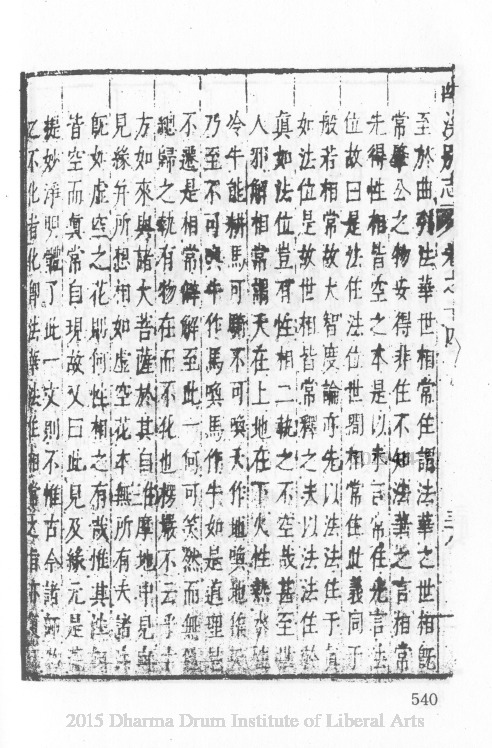 至於曲引法華世相常住謂法華之世相既
常肇公之物安得非住不知法華之言相常
先得性相皆空之本是以未言常住先言法
位故曰是法住法位世間相常住此義同于
般若相常故大智度論亦先以法法住于真
如法位是故世相皆常釋之夫以法法住於
真如法位豈有性相二執之不空哉甚至世
人邪解相常謂天在上地在下火性熱水性
冷牛能耕馬可騎不可喚天作地喚地作天
乃至不可喚牛作馬喚馬作牛如是道理是
不遷是相常解解至此一何可笑然而無
總歸之執有物在而不化也楞嚴不云乎十
方如來與諸大菩薩於其自住三摩地中見與
見緣并所想相如虛空花本無所有夫諸法
既如虛空之花則何性相之有哉惟其性相
皆空而真常自現故又曰此見及緣元是菩
提妙淨明體了此一文則不惟古今諸師
之不化者化即法華法住相常之旨亦
540
2015 Dharma Drum Institute of Liberal Arts